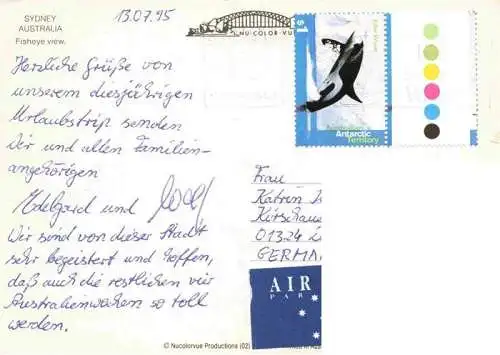 SYDNEY
AUSTRALIA
Fisheye view.
13.07.95
NU-COLOR-VUE
Herzliche Grüße von
unserem diesjährigen
Urlaubstrip senden
Dir und allen Familien-
angehörigen
Edelgard und
Wir sind von dieser Stadt
sehr begeistert und hoffen,
daß auch die restlichen vier
Australienwochen so toll
werden.
$1
Australian
Antarctic
Territory
Frau
Katrin
Kirschau
01324
GERMA
AIR
PAR
© Nucolorvue Productions (02)